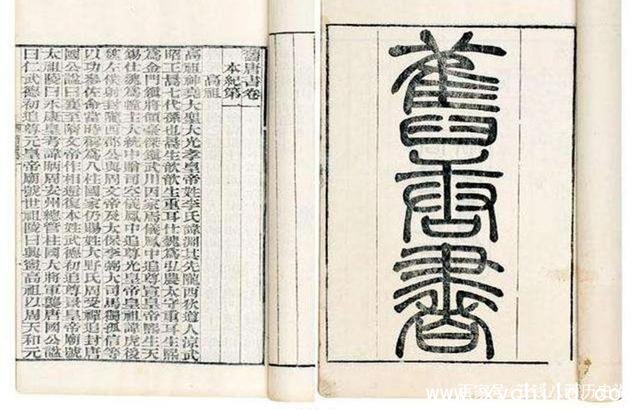 舊唐書
舊唐書卷
本紀第一
高祖
高祖神堯大聖大光孝皇帝姓李氏諱淵其先隴西狄道人涼武
昭王暠七代孫也暠生歆歆生重耳仕魏為弘農太守重耳生熙
為金門鎮將領豪傑鎮武川因家焉儀鳳中追尊宣皇帝熙生天
錫仕魏為幢主大統中贈司空儀鳳中追尊光皇帝皇祖諱虎後
魏左僕射封隴西郡公與周文帝及太保李弼大司馬獨孤信等
以功參佐命當時稱為八柱國家仍賜姓大野氏周受禪追封唐
國公諡曰襄至隋文帝作相還復本姓武德初追尊景皇帝廟號
太祖陵曰永康皇考諱昞安州總管柱國大將軍襲唐國公諡
曰仁武德初追尊元皇帝廟號世祖陵曰興寧高祖以周天和元